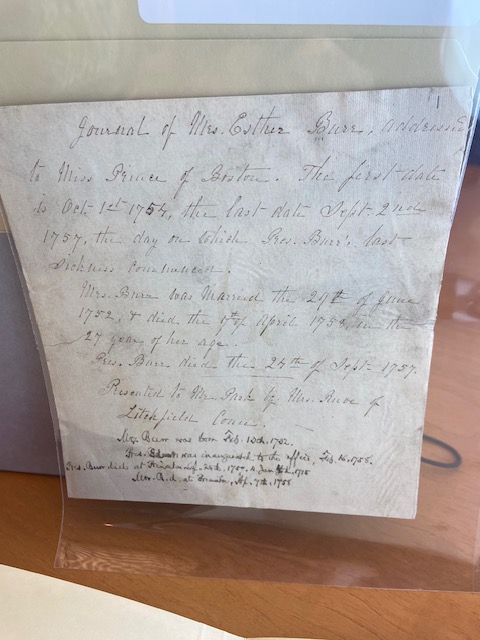 1
Journal of Mrs. Esther Burr, addressed
to Miss Prince of Boston. The first date
is Oct. 1st 1754, the last date Sept. 2nd
1757, the day on which Pres. Burr's last
sickness commenced.
Mrs. Burr was married the 29th of June
1752, & died the 7th of April 1758, in the
27 year of her age.
Pres. Burr died the 24th of Sept. 1757.
Presented to Mr Park by Mrs. Reeve of
Litchfield Conn.
Mrs. Burr was born Feb. 13th, 1732.
Pres. Edwards was inaugurated to the office, Feb. 16, 1758.
Pres. Burr died at 24th, 1757.
Mrs. B. d. at 7th, 1758